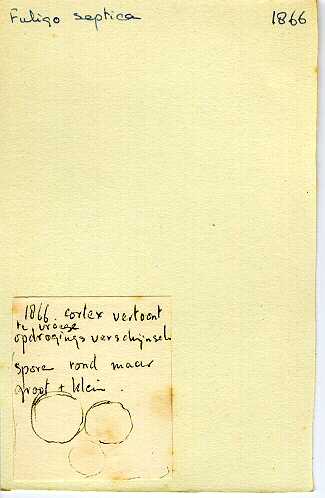 Fuligo septica 1866
1866. cortex vertoont
te vroege
opdrogings verschijnsels
spore rond maar
groot + klein.